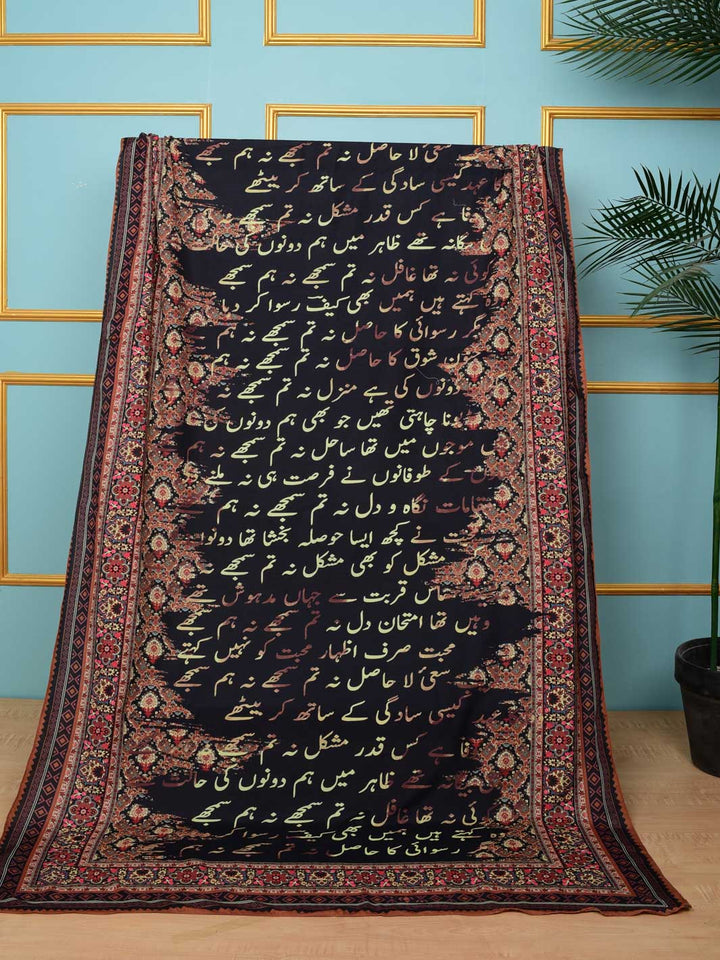 سعئ لا حاصل نہ تم سمجھے نہ ہم سمجھے
عہد کیسی سادگی کے ساتھ کر بیٹھے
فا ہے کس قدر مشکل نہ تم سمجھے نہ
گانہ تھے ظاہر میں ہم دونوں کی حالت
کوئی نہ تھا غافل نہ تم سمجھے نہ ہم سمجھے
کہتے ہیں ہمیں بھی کیف رسوا کر دیا
مگر رسوائی کا حاصل نہ تم سمجھے نہ ہم
شوق کا حاصل نہ تم سمجھے نہ ہم
دونوں کی ہے منزل نہ تم سمجھے نہ
ونا چاہتی تھیں جو بھی ہم دونوں کی
موجوں میں تھا ساحل نہ تم سمجھے نہ ہم
کے طوفانوں نے فرصت ہی نہ ملنے
مقامات نگاہ و دل نہ تم سمجھے نہ ہم
نے کچھ ایسا حوصلہ بخشا تھا دونوں
مشکل کو بھی مشکل نہ تم سمجھے نہ
قربت سے جہاں مدہوش تھے
وہیں تھا امتحان دل نہ تم سمجھے نہ ہم سمجھے
محبت صرف اظہار محبت کو نہیں کہتے
سعئ لا حاصل نہ تم سمجھے نہ ہم سمجھے
کیسی سادگی کے ساتھ کر بیٹھے
فا ہے کس قدر مشکل نہ تم سمجھے نہ
تھے ظاہر میں ہم دونوں کی حالت
کوئی نہ تھا غافل نہ تم سمجھے نہ ہم سمجھے
وہ کہتے ہیں ہمیں بھی کیف رسوا کر
رسوائی کا حاصل نہ تم سمجھے نہ ہم